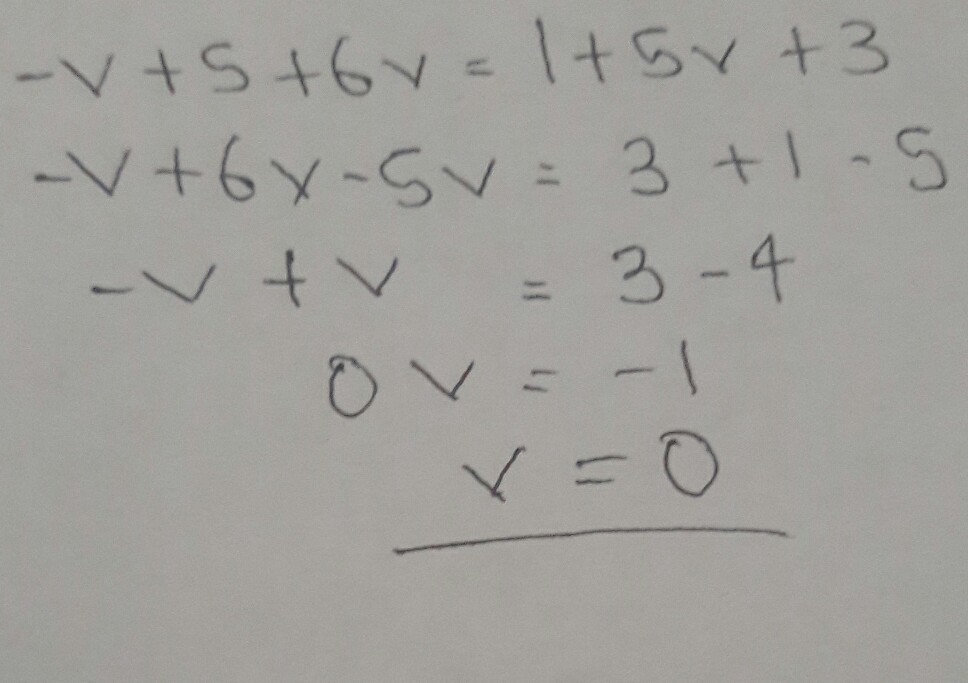 -v+5+6v=1+5v+3
-v+6v-5v=3+1-5
-v+v=3-4
0v=-1
v=0